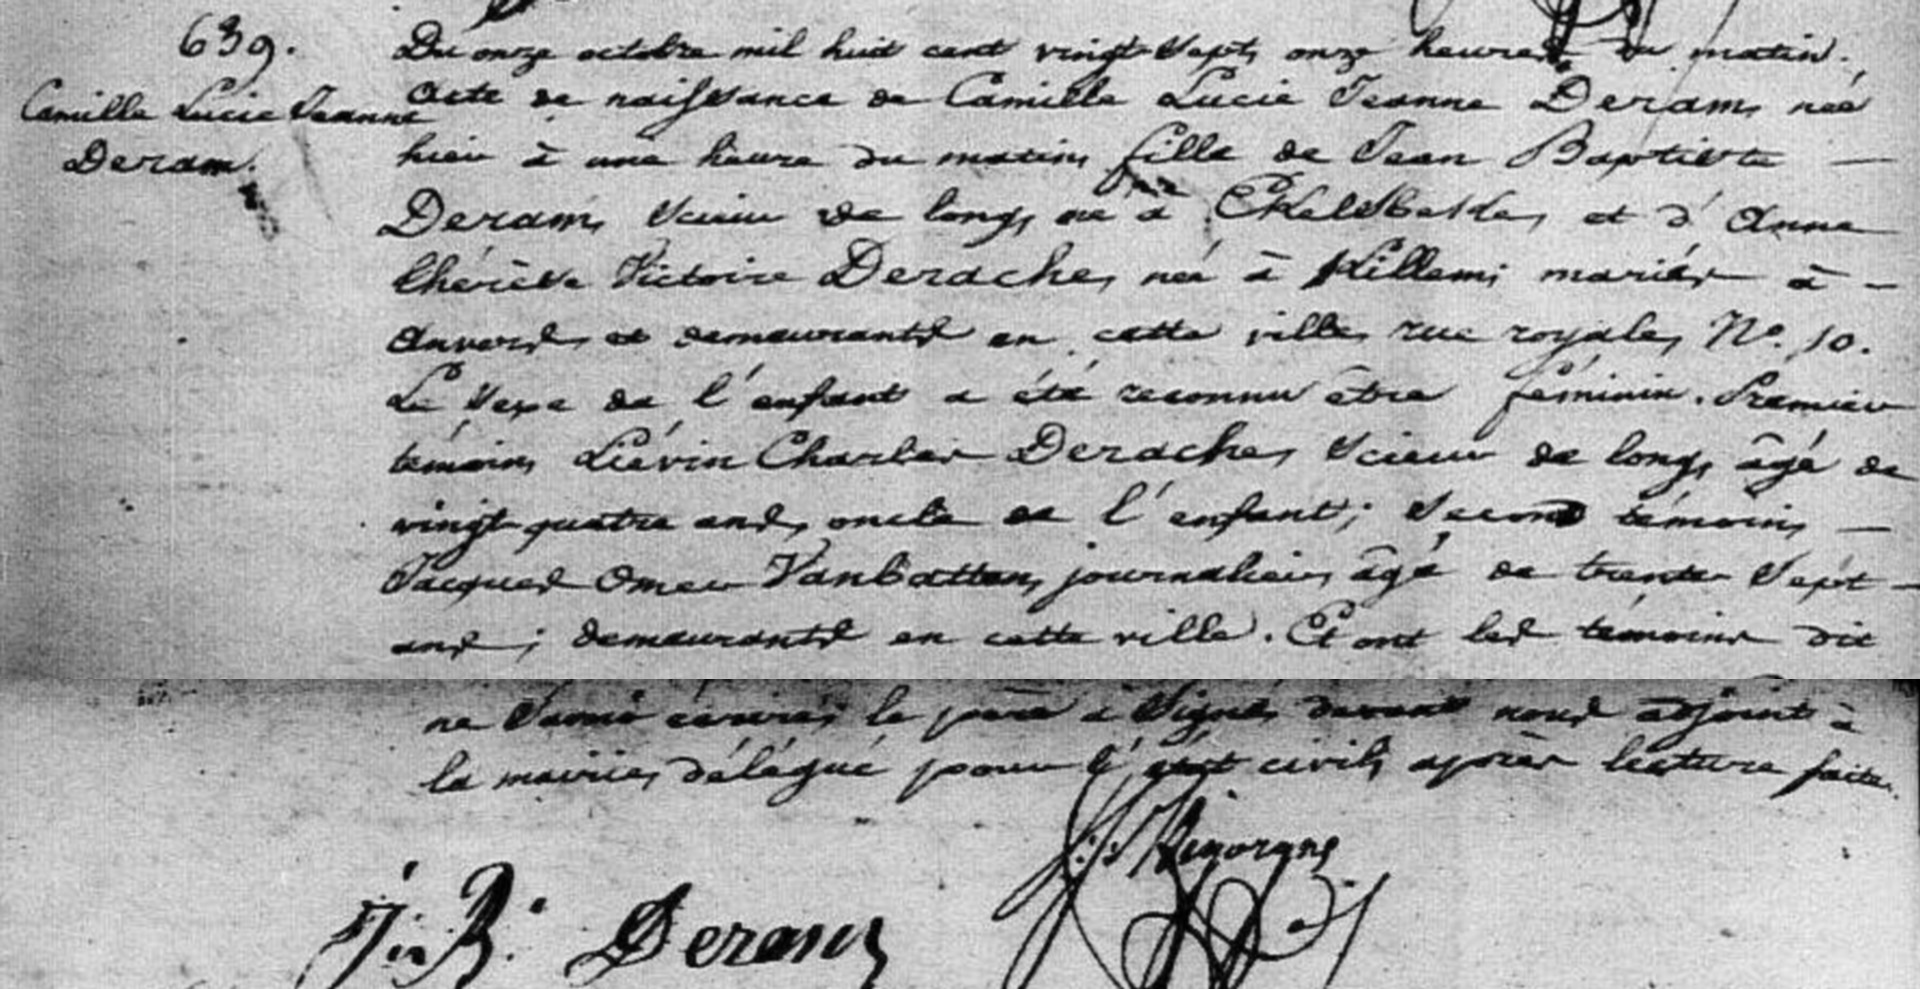 639.
Camille Lucie Jeanne
Deram.
Du onze octobre mil huit cent vingt-sept, onze heures du matin.
Acte de naissance de Camille Lucie Jeanne Deram, née
hier à une heure du matin, fille de Jean Baptiste —
Deram, scieur de long, né à Ekelsbeke, et d'Anne
Thérèse Victoire Derache, née à Killem; mariés à —
Anvers, et demeurants en cette ville, rue royale, N.º 10.
Le sexe de l'enfant a été reconnu être féminin. Premier
témoin, Liévin Charles Derache, scieur de long, âgé de
vingt-quatre ans, oncle de l'enfant; second témoin, —
Jacques Omer Vanbatten, journalier, âgé de trente sept —
ans; demeurants en cette ville. Et ont les témoins dit
ne savoir écrire, le père a signé, devant nous adjoint à
la mairie, délégué pour l'état civil, après lecture faite.
J. B. Deram